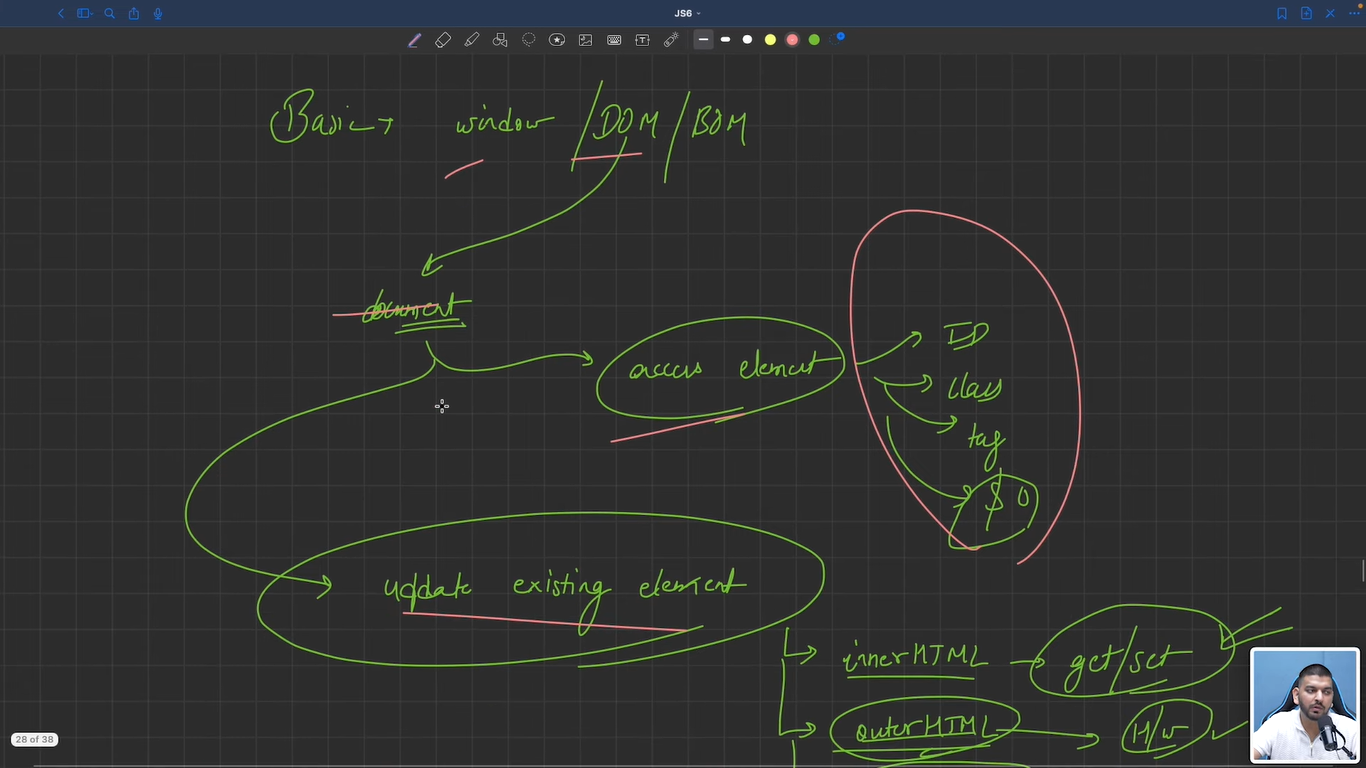 JS6
Basic → window / DOM / BOM
document
access element
ID
class
tag
$0
update existing element
innerHTML → get/set
outerHTML → H/W
28 of 38